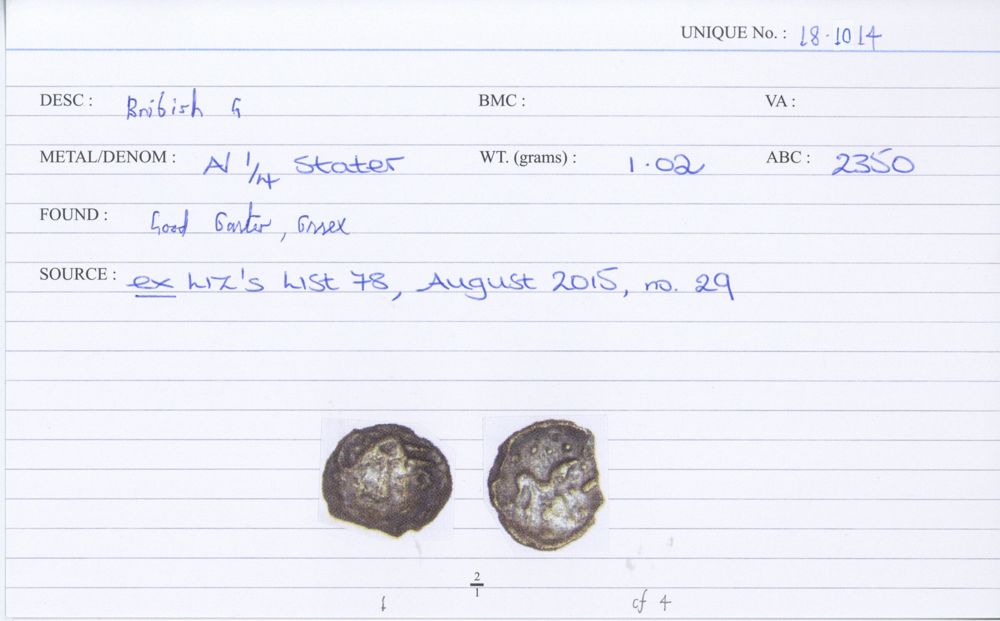 UNIQUE No. : 18·1014
DESC : British G BMC : VA :
METAL/DENOM : AV 1/4 Stater WT. (grams) : 1·02 ABC : 2350
FOUND : Good Easter, Essex
SOURCE : ex Liz's List 78, August 2015, no. 29
2/1
1 cf 4